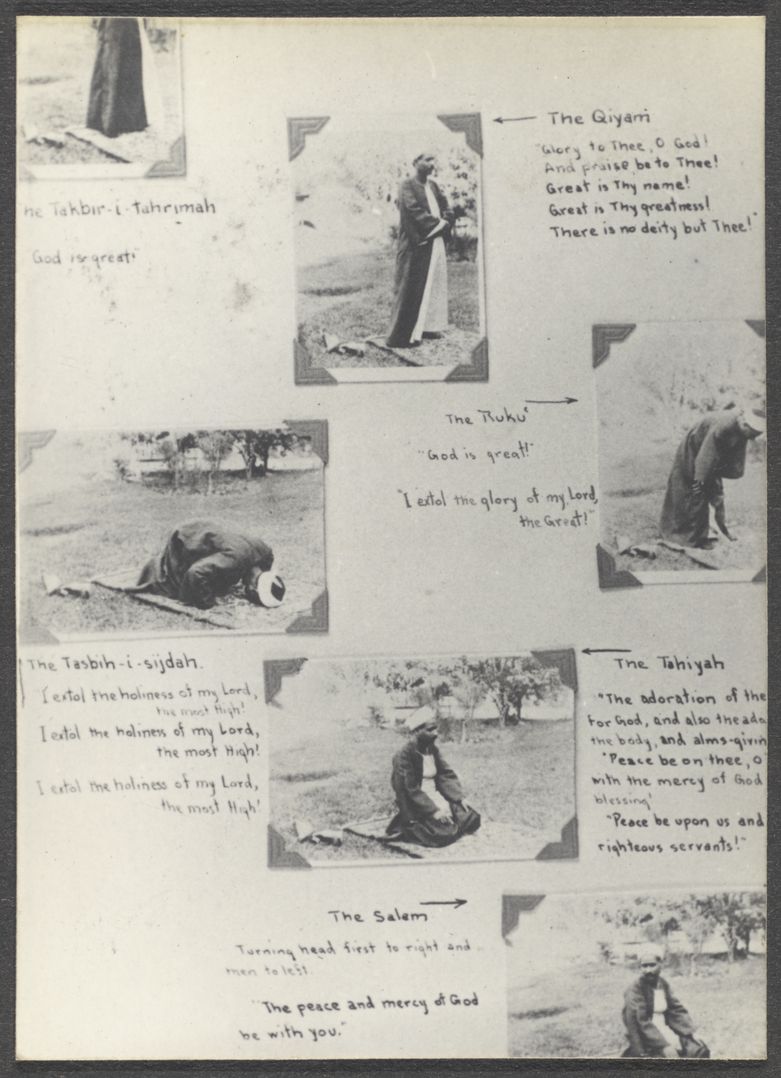 The Qiyam
"Glory to Thee, O God!
And praise be to Thee!
Great is Thy name!
Great is Thy greatness!
There is no deity but Thee!"
he Takbir-i-tahrimah
God is great!"
The Ruku'
"God is great!"
"I extol the glory of my Lord,
the Great!"
The Tasbih-i-sijdah.
I extol the holiness of my Lord,
the most High!
I extol the holiness of my Lord,
the most High!
I extol the holiness of my Lord,
the most High!
The Tahiyah
"The adoration of the
For God, and also the ado
the body, and alms-givin
"Peace be on thee, O
with the mercy of God
blessing'
"Peace be upon us and
righteous servants!"
The Salem
Turning head first to right and
then to left.
"The peace and mercy of God
be with you."